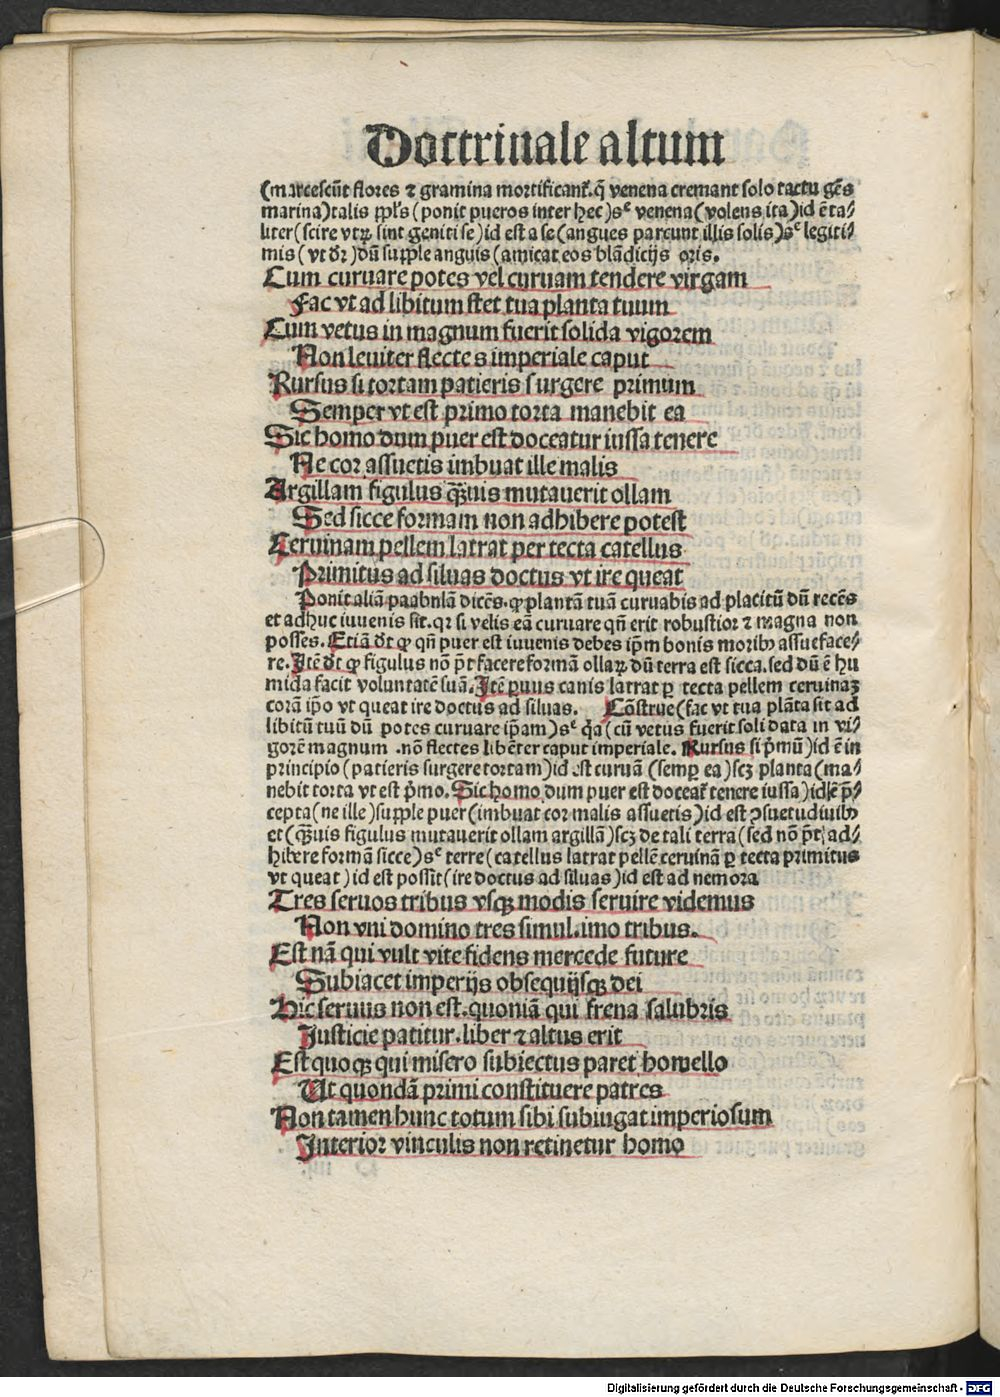 Doctrinale altum
(marcescūt flores ⁊ gramina mortificant᷑.q̄ venena cremant solo tactu gēs
marina)talis ppl's (ponit pueros inter hec)sᵉ venena(volens ita)id ē ta⸗
liter(scire vtꝝ sint geniti se)id est a se(angues parcunt illis solis)sᵉ legiti⸗
mis(vt dr̄)dū supple anguis(amicat eos blādicijs oris.
Cum curuare potes vel curuam tendere virgam
Fac vt ad libitum stet tua planta tuum
Cum vetus in magnum fuerit solida vigorem
Non leuiter flectes imperiale caput
Rursus si tortam patieris surgere primum
Semper vt est primo torta manebit ea
Sic homo dum puer est doceatur iussa tenere
Ne cor assuetis imbuat ille malis
Argillam figulus qᷓuis mutauerit ollam
Sed sicce formam non adhibere potest
Ceruinam pellem latrat per tecta catellus
Primitus ad siluas doctus vt ire queat
Ponit aliā paabulā dicēs.ꝙ plantā tuā curuabis ad placitū dū recēs
et adhuc iuuenis sit.qr si velis eā curuare qn̄ erit robustior ⁊ magna non
posses. Etiā dt ꝙ qn̄ puer est iuuenis debes ip̄m bonis morib⁹ assueface⸗
re.Itē dt ꝙ figulus nō pt̄ facere formā ollaꝝ dū terra est sicca.sed dū ē hu
mida facit voluntatē suā.Itē ꝑuus canis latrat ꝑ tecta pellem ceruinaꝫ
corā ip̄o vt queat ire doctus ad siluas. Cōstrue(fac vt tua plāta sit ad
libitū tuū dū potes curuare ip̄am)sᵉ qᷓa(cū vetus fuerit soli data in vi⸗
gorē magnum .nō flectes libēter caput imperiale. Rursus si p̄mū)id ē in
principio(patieris surgere tortam)id est curuā (semꝑ ea)scꝫ planta(ma⸗
nebit torta vt est p̄mo. Sic homo dum puer est doceat᷑ tenere iussa)id ē p̄⸗
cepta(ne ille)supple puer(imbuat cor malis assuetis)id est ꝯsuetudinib⁹
et(qᷓuis figulus mutauerit ollam argillā)scꝫ de tali terra(sed nō pt̄ ad⸗
hibere formā sicce)sᵉ terre(catellus latrat pellē ceruinā ꝑ tecta primitus
vt queat)id est possit(ire doctus ad siluas)id est ad nemora
Tres seruos tribus vsqꝫ modis seruire videmus
Non vni domino tres simul.imo tribus.
Est nā qui vult vite fidens mercede future
Subiacet imperijs obsequijsqꝫ dei
Hic seruus non est.quoniā qui frena salubris
Justicie patitur.liber ⁊ altus erit
Est quoqꝫ qui misero subiectus paret homello
Ut quondā primi constituere patres
Non tamen hunc totum sibi subiugat imperiosum
Interior vinculis non retinetur homo
Digitalisierung gefördert durch die Deutsche Forschungsgemeinschaft - DFG